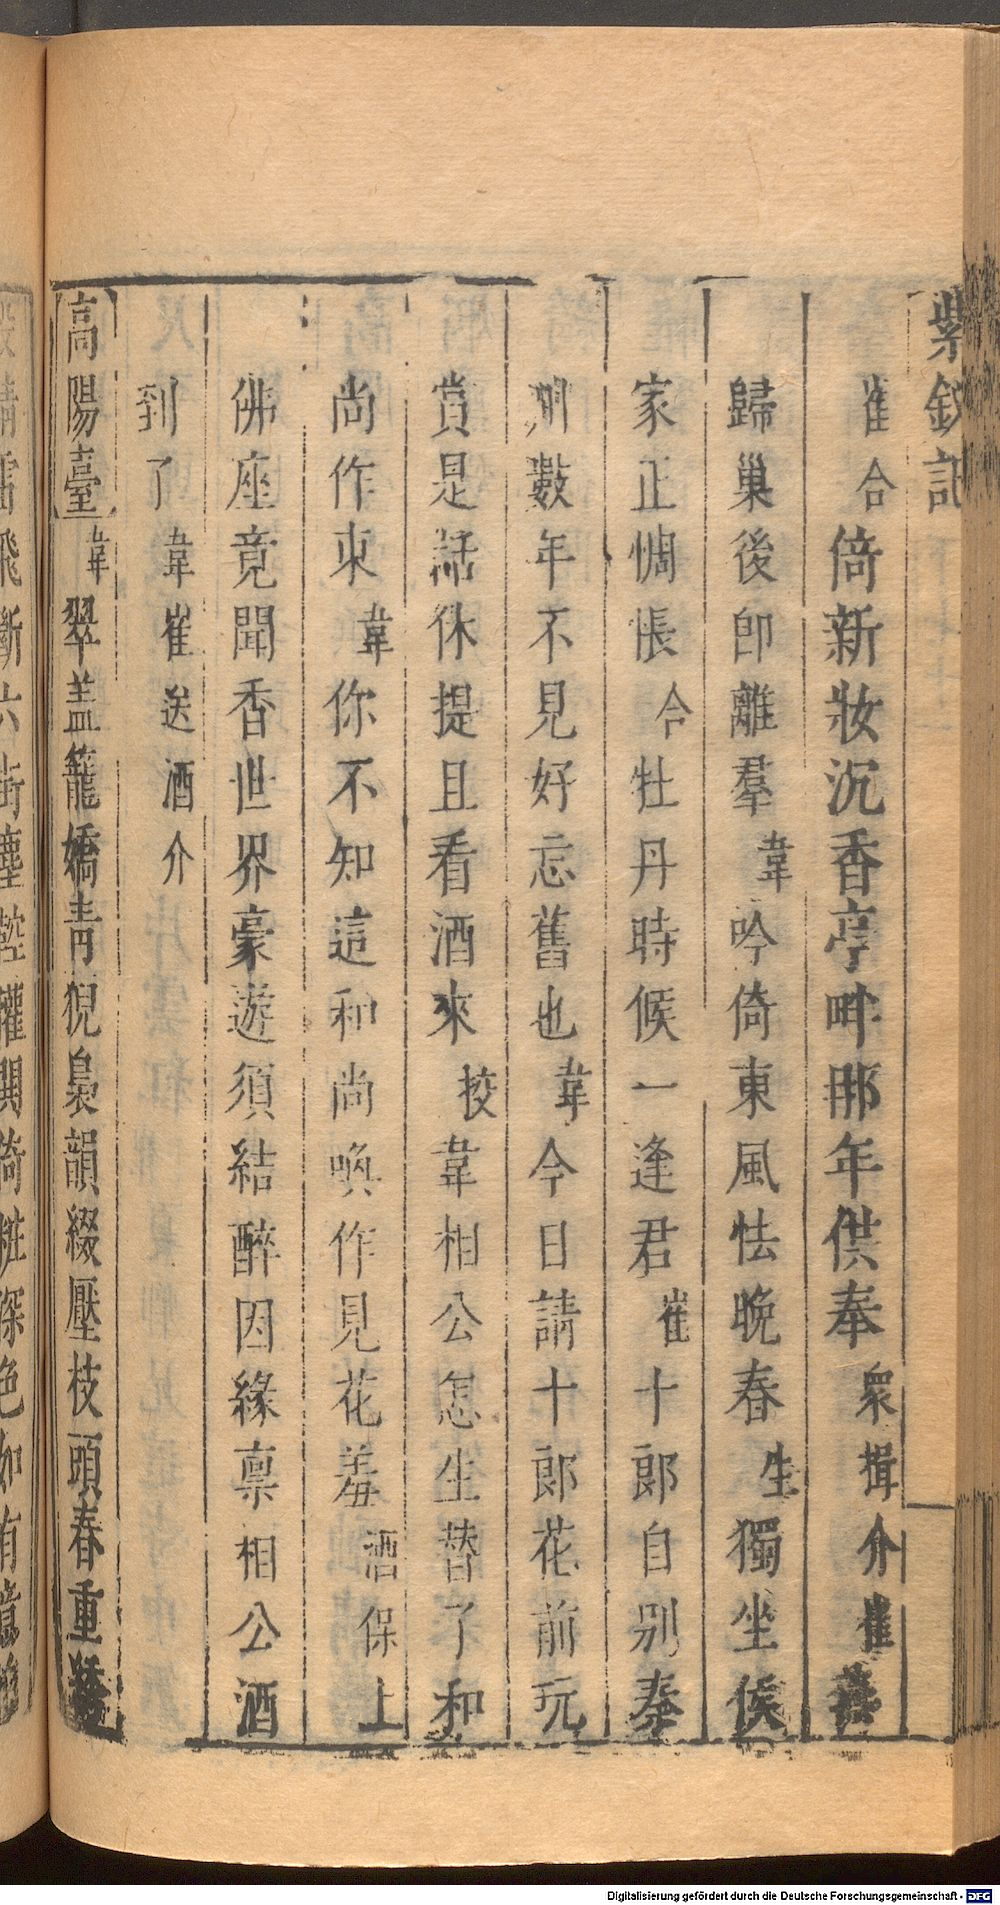 紫釵記
崔合倚新妝沉香亭畔那年供奉衆揖介崔
歸巢後卽離羣韋吟倚東風怯晚春生獨坐侯
家正惆悵合牡丹時候一逢君崔十郎自别秦
州數年不見好忘舊也韋今日請十郎花前玩
賞是話休提且看酒來校韋相公怎生替了和
尚作東韋你不知這和尚喚作見花羞酒保上
佛座竟聞香世界豪遊須結醉因緣禀相公酒
到了韋崔送酒介
高陽臺韋翠盖籠嬌青猊裊韻綴壓枝頭春重
Digitalisierung gefördert durch die Deutsche Forschungsgemeinschaft - DFG